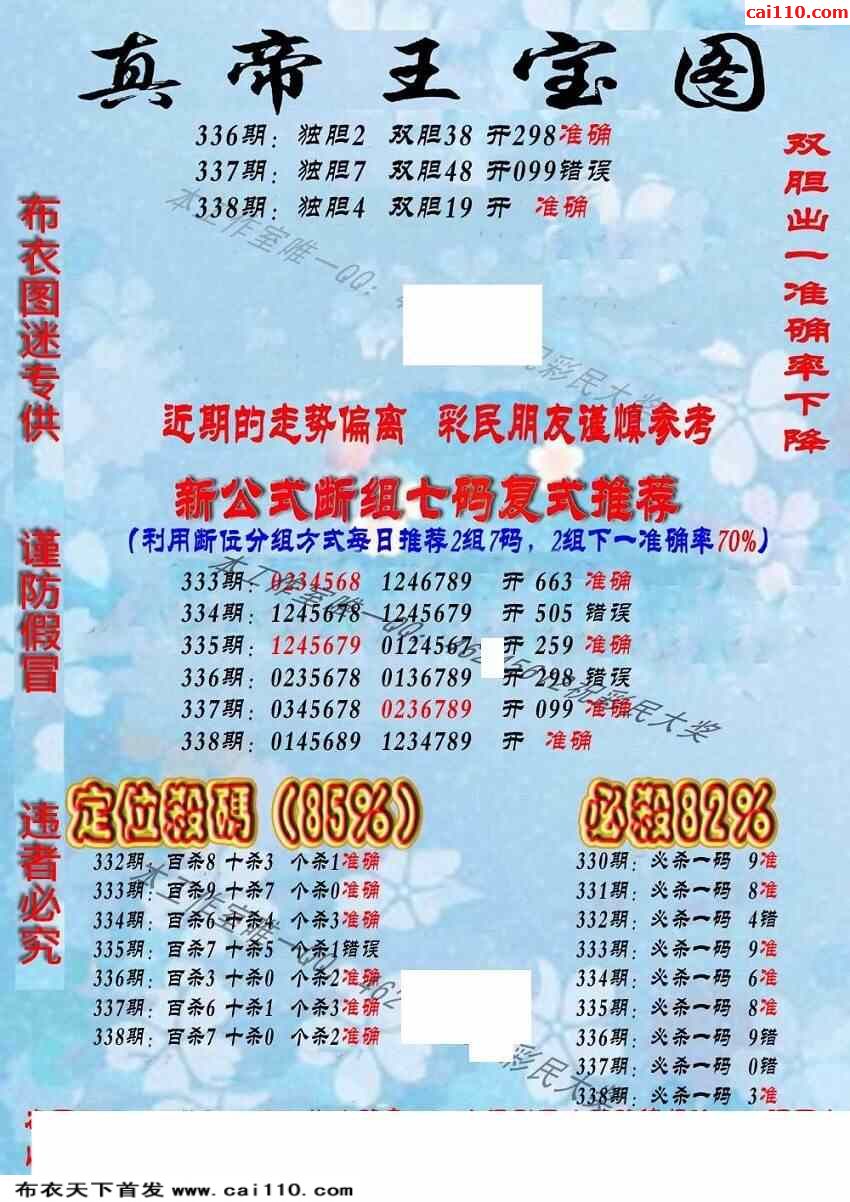 cai110.com
真帝王宝图
336期：独胆2 双胆38 开298准确
337期：独胆7 双胆48 开099错误
338期：独胆4 双胆19 开 准确
双胆出一准确率下降
布衣图迷专供
谨防假冒
违者必究
本工作室唯一QQ：
彩民大奖
近期的走势偏离 彩民朋友谨慎参考
新公式断组七码复式推荐
（利用断位分组方式每日推荐2组7码，2组下一准确率70%）
333期：0234568 1246789 开 663 准确
334期：1245678 1245679 开 505 错误
335期：1245679 0124567 开 259 准确
336期：0235678 0136789 开 298 错误
337期：0345678 0236789 开 099 准确
338期：0145689 1234789 开 准确
本工作室唯一QQ：
祝彩民大奖
定位殺碼（85%）
332期：百杀8 十杀3 个杀1准确
333期：百杀9 十杀7 个杀0准确
334期：百杀6 十杀4 个杀3准确
335期：百杀7 十杀5 个杀1错误
336期：百杀3 十杀0 个杀2准确
337期：百杀6 十杀1 个杀3准确
338期：百杀7 十杀0 个杀2准确
必殺82%
330期：必杀一码 9准
331期：必杀一码 8准
332期：必杀一码 4错
333期：必杀一码 9准
334期：必杀一码 6准
335期：必杀一码 8准
336期：必杀一码 9错
337期：必杀一码 0错
338期：必杀一码 3准
本工作室唯一QQ：462
彩民大奖
布衣天下首发 www.cai110.com